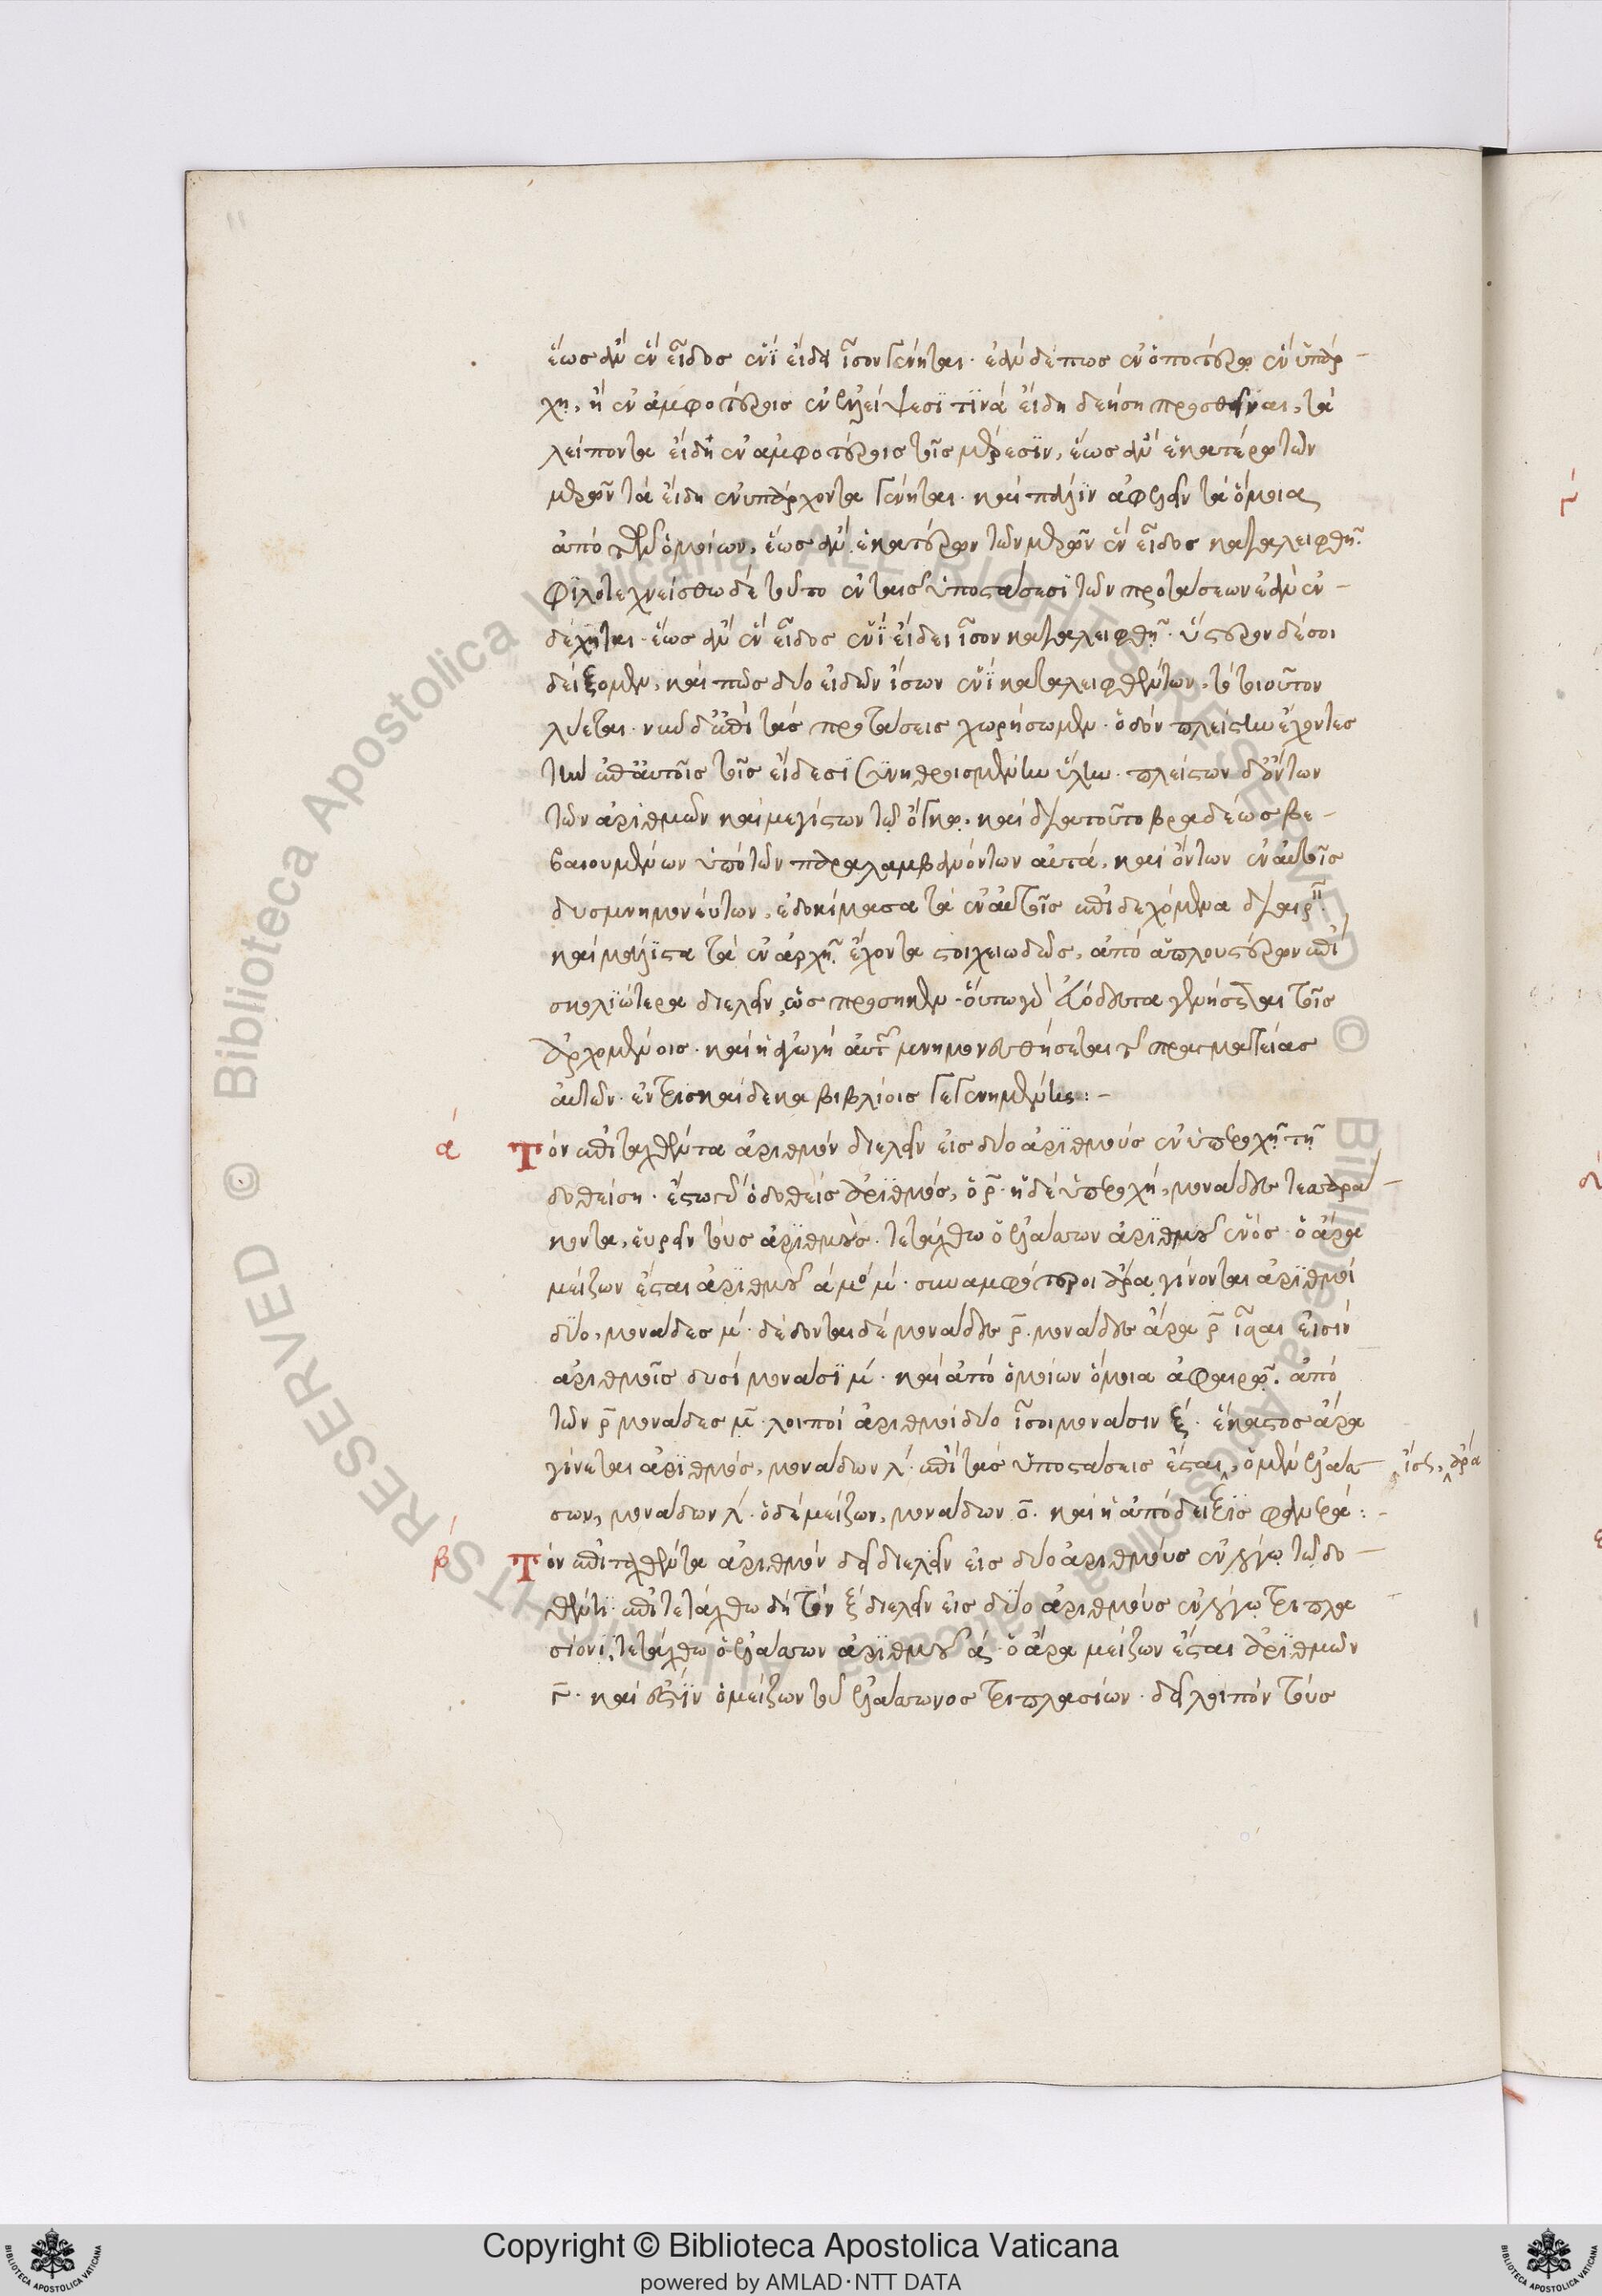 ἕως ἂν ἓν εἶδος ἑνὶ εἴδει ἴσον γένηται. ἐὰν δέ πως ἐν ὁποτέρῳ ἐνυπάρ-
χῃ, ἢ ἐν ἀμφοτέροις ἐν ἐλλείψεσί τινα εἴδη δεήσῃ προσθεῖναι, τὰ
λείποντα εἴδη ἐν ἀμφοτέροις τοῖς μέρεσιν, ἕως ἂν ἑκατέρῳ τῶν
μερῶν τὰ εἴδη ἐνυπάρχοντα γένηται. καὶ πάλιν ἀφελεῖν τὰ ὅμοια
ἀπὸ τῶν ὁμοίων, ἕως ἂν ἑκατέρῳ τῶν μερῶν ἓν εἶδος καταλειφθῇ.
φιλοτεχνείσθω δὲ τοῦτο ἐν ταῖς ὑποστάσεσι τῶν προτάσεων ἐὰν ἐν-
δέχηται. ἕως ἂν ἓν εἶδος ἑνὶ εἴδει ἴσον καταλειφθῇ. ὕστερον δέ σοι
δείξομεν, καὶ πῶς δύο εἰδῶν ἴσων ἑνὶ καταλειφθέντων, τὸ τοιοῦτον
λύεται. νῦν δ' ἐπὶ τὰς προτάσεις χωρήσωμεν. ὁδὸν πλείστην ἔχοντες
τὴν ἐπ' αὐτοῖς τοῖς εἴδεσι συνηθροισμένην ὕλην. πλείστων δ' ὄντων
τῶν ἀριθμῶν καὶ μεγίστων τῷ ὄγκῳ. καὶ διὰ τοῦτο βραδέως βε-
βαιουμένων ὑπὸ τῶν παραλαμβανόντων αὐτά, καὶ ὄντων ἐν αὐτοῖς
δυσμνημονεύτων, ἐδοκίμασα τὰ ἐν αὐτοῖς ἐπιδεχόμενα διαιρεῖν.
καὶ μάλιστα τὰ ἐν ἀρχῇ ἔχοντα στοιχειωδῶς, ἀπὸ ἁπλουστέρων ἐπὶ
σκολιώτερα διελεῖν, ὡς προσῆκεν. οὕτω γὰρ εὐόδευτα γενήσεται τοῖς
ἀρχομένοις. καὶ ἡ ἀγωγὴ αὐτῶν μνημονευθήσεται τῆς πραγματείας
αὐτῶν. ἐν τρισκαίδεκα βιβλίοις γεγενημένης:-
ά Τὸν ἐπιταχθέντα ἀριθμὸν διελεῖν εἰς δύο ἀριθμοὺς ἐν ὑπεροχῇ τῇ
δοθείσῃ. ἔστω δὴ ὁ δοθεὶς ἀριθμός, ὁ ρ̄. ἡ δὲ ὑπεροχή, μονάδων τεσσαρά-
κοντα, εὑρεῖν τοὺς ἀριθμούς. τετάχθω ὁ ἐλάσσων ἀριθμοῦ ἑνός. ὁ ἄρα
μείζων ἔσται ἀριθμοῦ ά μο μ́. συναμφότεροι ἄρα γίνονται ἀριθμοὶ
δύο, μονάδες μ́. δέδονται δὲ μονάδες ρ̄. μονάδες ἄρα ρ̄ ἴσαι εἰσὶν
ἀριθμοῖς δυσὶ μονάσι μ́. καὶ ἀπὸ ὁμοίων ὅμοια ἀφαιρῶ. ἀπὸ
τῶν ρ̄ μονάδες μ̄. λοιποὶ ἀριθμοὶ δύο ἴσοι μονάσιν ξ́. ἕκαστος ἄρα
γίνεται ἀριθμός, μονάδων λ́. ἐπὶ τὰς ὑποστάσεις ἔσται, ὁ μὲν ἐλάσ-
σων, μονάδων λ́. ὁ δὲ μείζων, μονάδων ο̄. καὶ ἡ ἀπόδειξις φανερά:-
β́ Τὸν ἐπιταχθέντα ἀριθμὸν δεῖ διελεῖν εἰς δύο ἀριθμοὺς ἐν λόγῳ τῷ δο-
θέντι. ἐπιτετάχθω δὴ τὸν ξ́ διελεῖν εἰς δύο ἀριθμοὺς ἐν λόγῳ τριπλα
σίονι, τετάχθω ὁ ἐλάσσων ἀριθμοῦ ά. ὁ ἄρα μείζων ἔσται ἀριθμῶν
γ̄. καὶ ἔστιν ὁ μείζων τοῦ ἐλάσσονος τριπλασίων. δεῖ λοιπὸν τοὺς
Copyright © Biblioteca Apostolica Vaticana
powered by AMLAD·NTT DATA